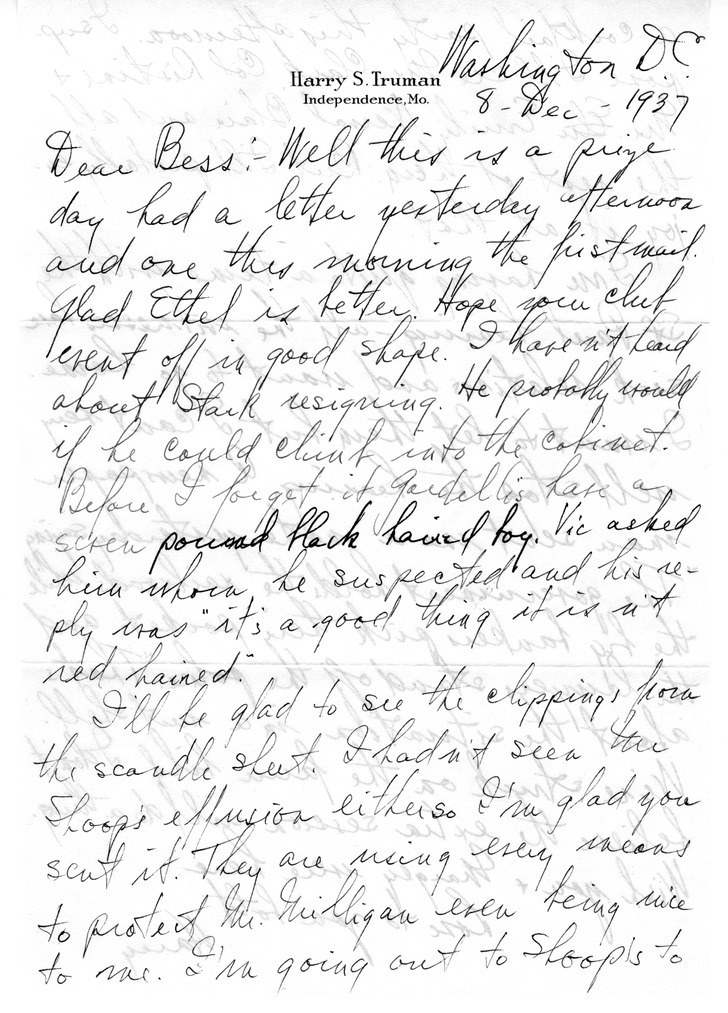 Washington D.C.
Harry S. Truman
Independence, Mo.
8 - Dec - 1937
Dear Bess:- Well this is a prize
day had a letter yesterday afternoon
and one this morning the first mail.
Glad Ethel is better. Hope your club
went off in good shape. I haven't heard
about Stark resigning. He probably would
if he could climb into the cabinet.
Before I forget it Gardellis have a
seven pound black haired boy. Vic asked
him whom he suspected and his re-
ply was "it's a good thing it is n't
red haired".
I'll be glad to see the clippings from
the scandle sheet. I hadn't seen the
Shoop's effusion either so I'm glad you
sent it. They are using every means
to protect Mr. Milligan even being nice
to me. I'm going out to Shoop's to